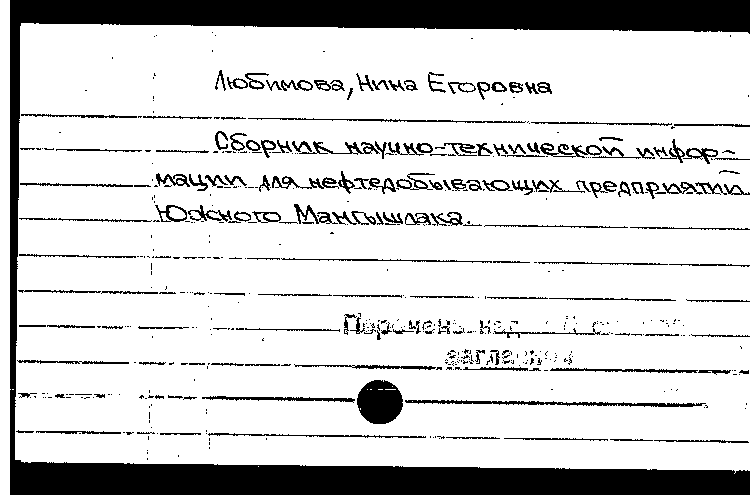 Любимова, Нина Егоровна
Сборник научно-технической инфор-
мации для нефтедобывающих предприятий
Южного Мангышлака.
Перечень